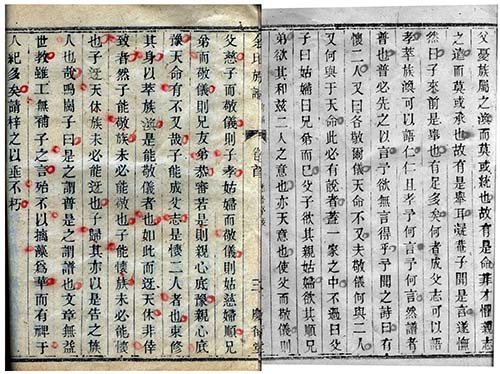 父憂族屬之渙而莫或統也故有是命菲才懼違志
之遺而莫或承也故有是舉耳湜齋子聞是言遽憮
然曰子來前是舉也有足多矣何者成父志可以語
孝萃族渙可以語仁仁且孝予何言予何言然譜者
普也普必先之以言予欲無言得乎予聞之詩曰有
懷二人又曰各敬爾儀天命不又夫敬儀何與二人
又何與于天命此必有說者蓋一家之中不過曰父
子曰姑婦曰兄弟而已父子欲其親姑婦欲其順兄
弟欲其和茲二人之意也亦天意也使父而敬儀則
余氏族譜 卷首 三 慶衍堂
父慈子而敬儀則子孝姑婦而敬儀則姑慈婦順兄
弟而敬儀則兄友弟恭審若是則親心底豫親心底
豫天命有不又哉子能成父志是懷二人者也束修
其身以萃族渙是能敬儀者也如此而迓天休非倖
致者然子能敬儀族未必能敬也子能懷族未必能懷
也子迓天休族未必能迓也子歸其亦以是告之族
人也哉鳴崗子曰是之謂普是之謂譜也文章無益
世教雖工無補子之言殆不以摛藻為華而有裨于
人紀多矣請梓之以垂不朽